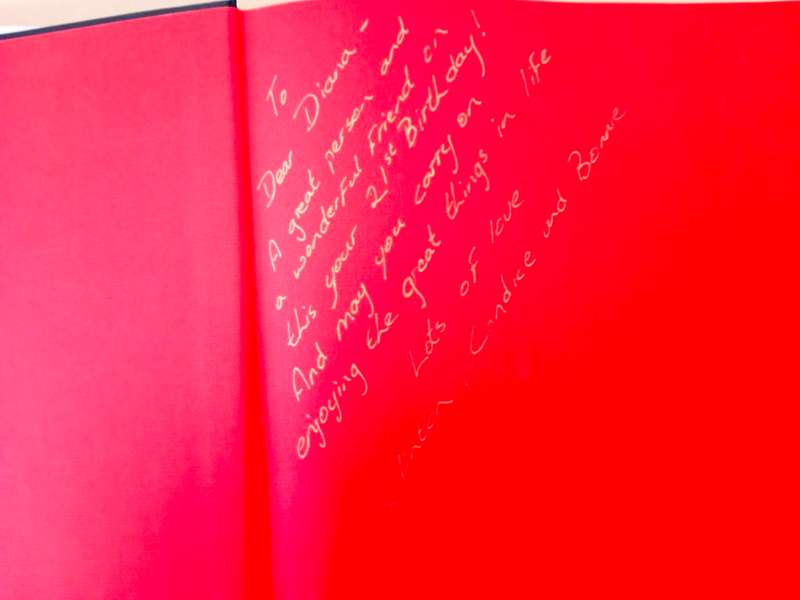 To
Dear Diana -
A great person and
a wonderful Friend on
this your 21st Birthday!
And may you carry on
enjoying the great things in life
Lots of love
Candice and